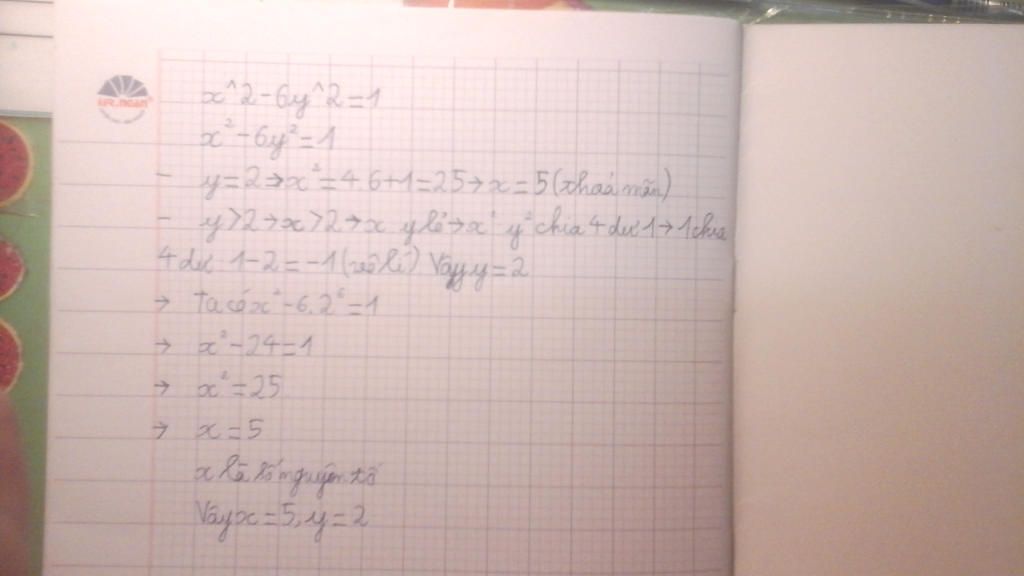 MR.NGAN
x^2-6y^2=1
x²-6y²=1
- y=2→x²=4.6+1=25→x=5(thoả mãn)
- y>2→x>2→x y lẻ→x² y² chia 4 dư 1→1 chia
4 dư 1-2=-1(vô lí) Vậy y=2
→ Ta có x²-6.2⁶=1
→ x²-24=1
→ x²=25
→ x=5
x là số nguyên tố
Vậy x=5, y=2